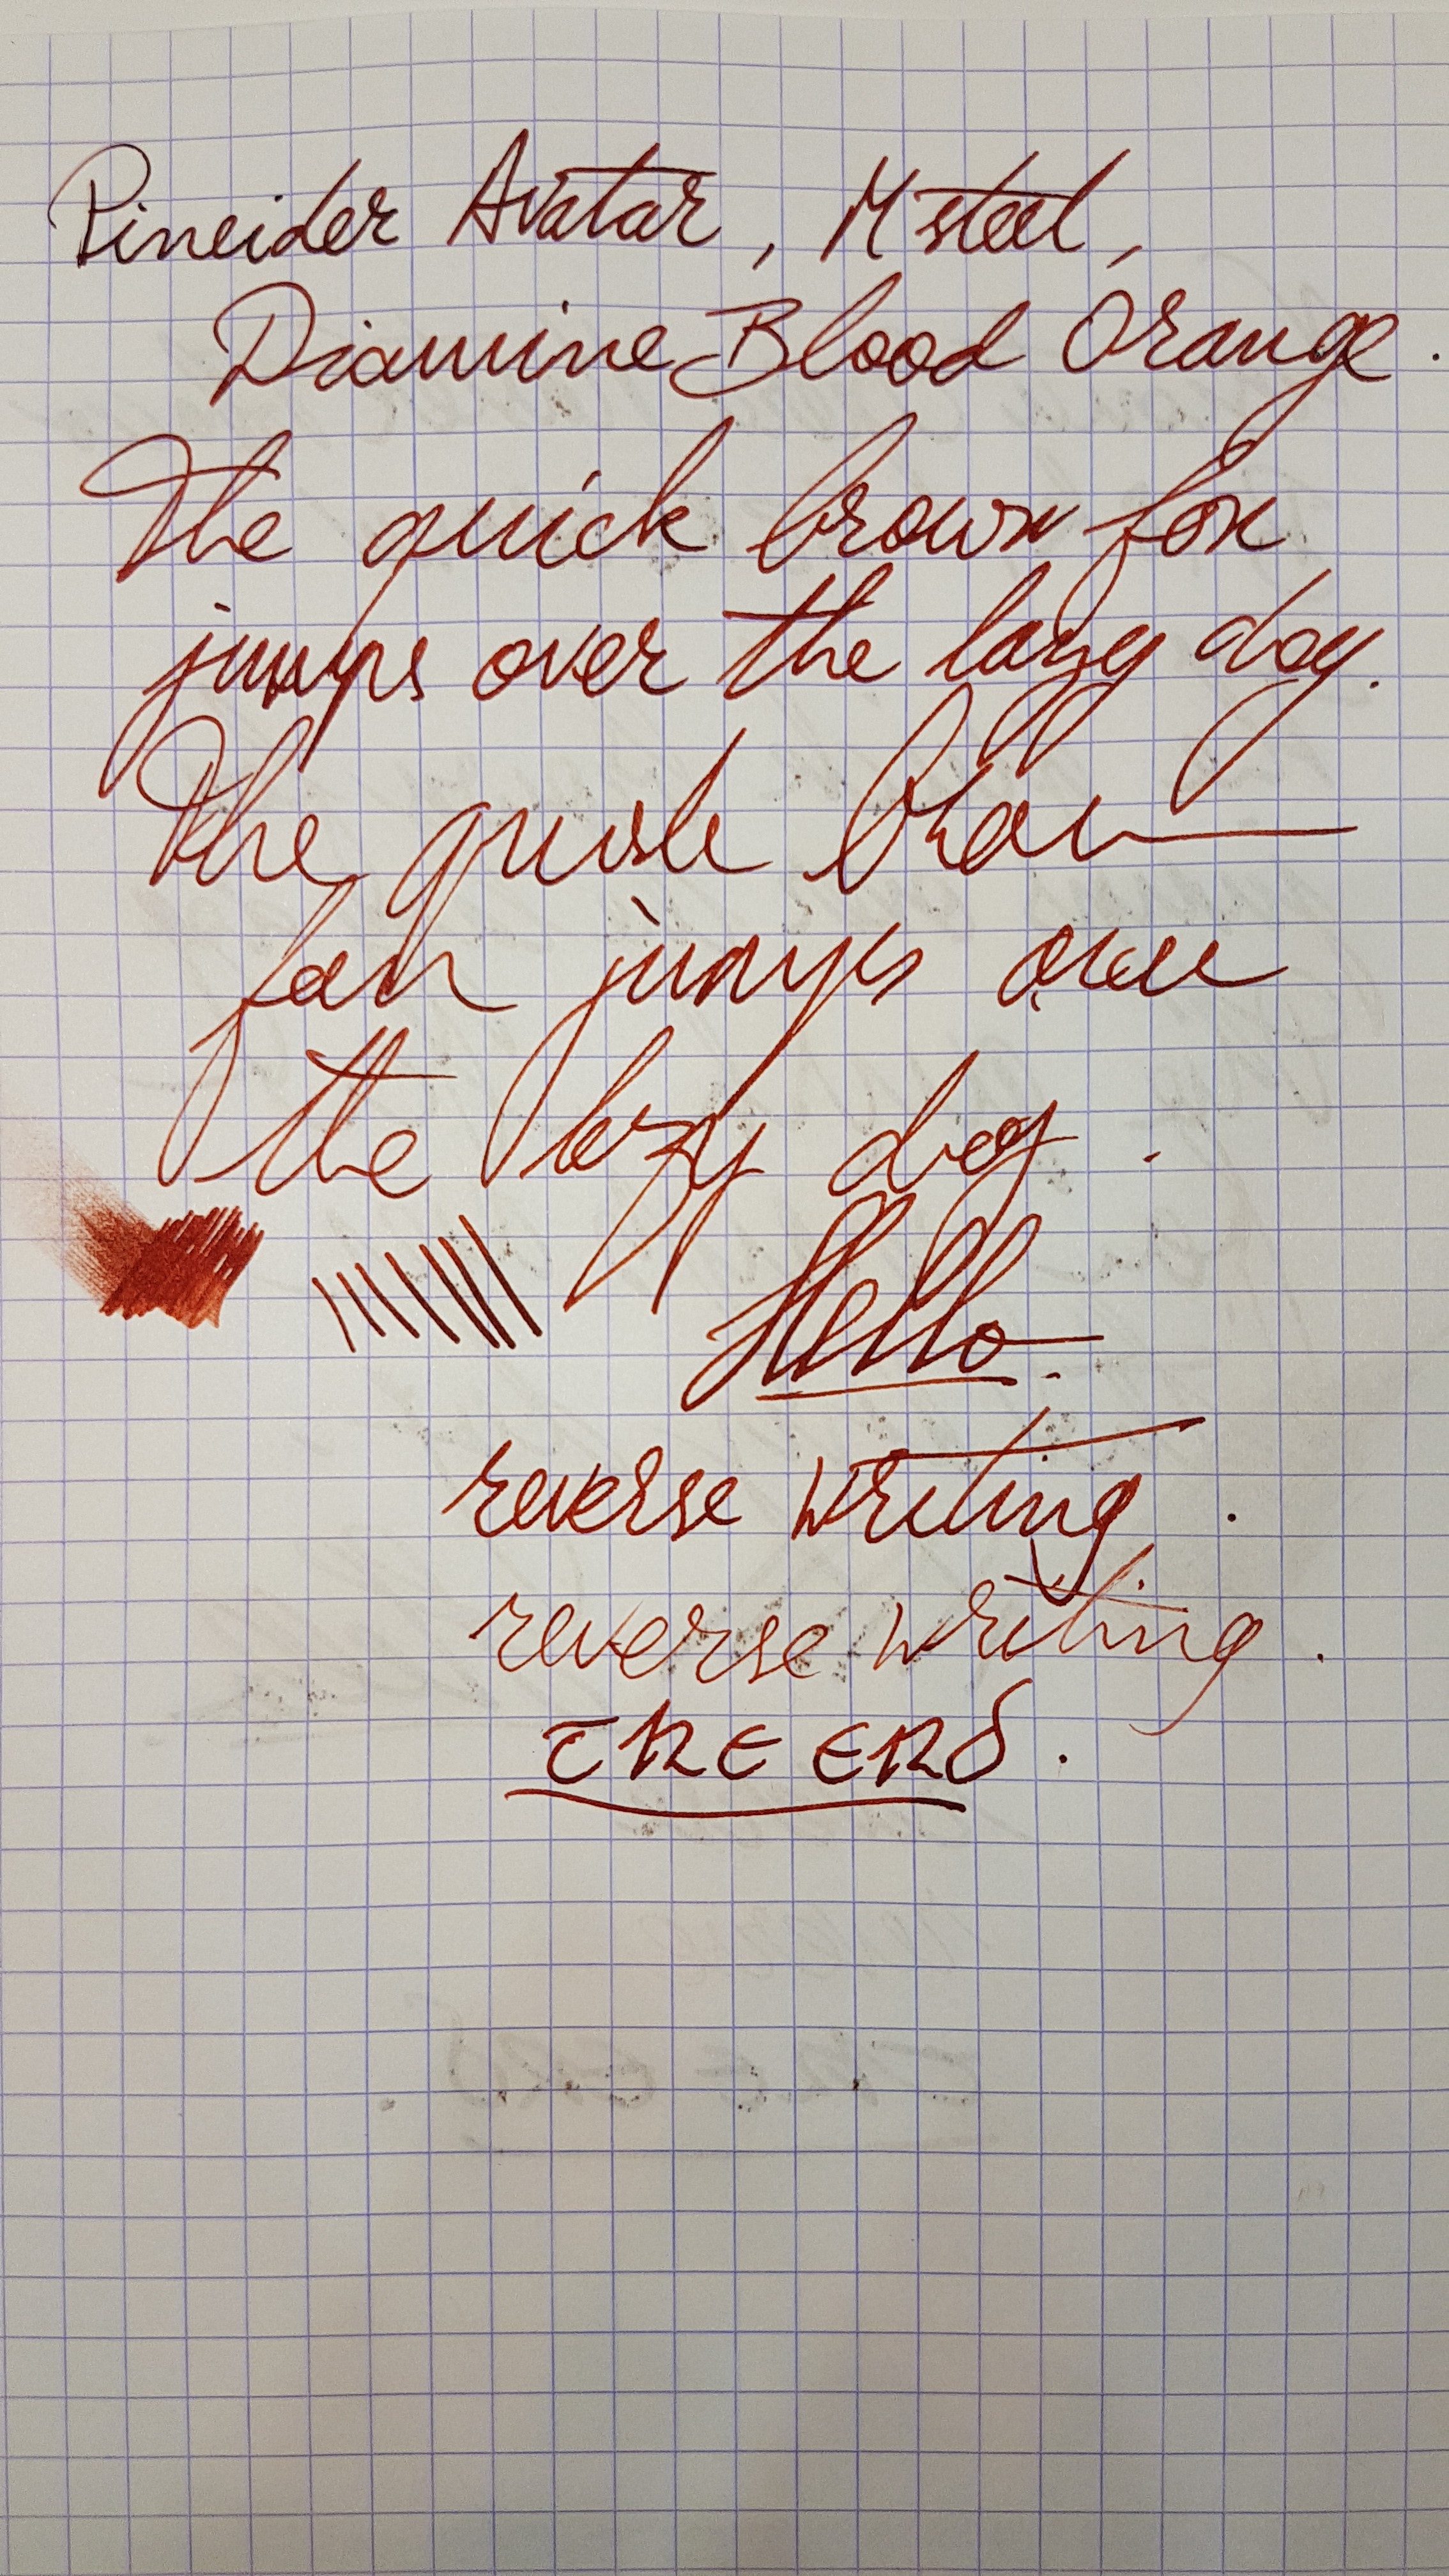 Pineider Avatar, M steel,
Diamine Blood Orange.
The quick brown fox
jumps over the lazy dog.
The quick brown
fox jumps over
the lazy dog.
Hello.
reverse writing.
reverse writing.
THE END.